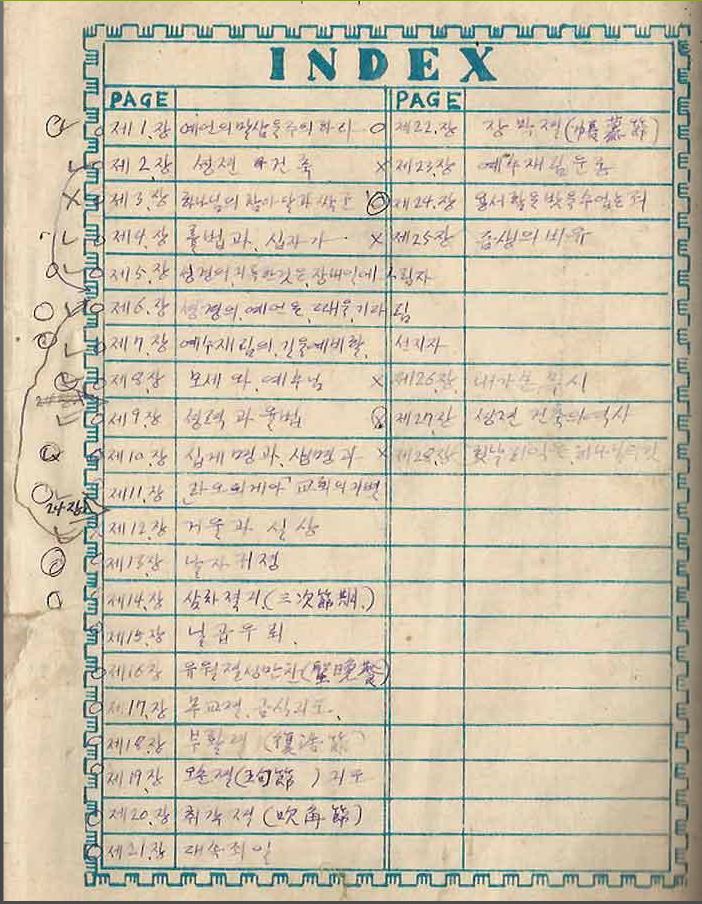 INDEX
PAGE
제1.장 예언의말삼을주의하라
제2.장 성전 건축
제3.장 하나님의
제4.장 률법과, 십자가
제5.장 성경에기록한것은,장래일에 그림자
제6.장 성경의,예언은,때를,기다림
제7.장 예수재림의,길을예비할, 선지자
제8.장 모세와,예수님
제9.장 성력과 율법
제10.장 십게명과,생명과
제11.장 라오듸게아 교회의기별
제12.장 거울과 실상
제13.장 날자
제14.장 삼차절기.(三次節期.)
제15.장
제16장 유월절성만찬(聖晩餐)
제17.장 무교절,금식지도.
제18.장 부활절 (復活節)
제19.장 오순절(五旬節 ) 지도
제20.장 취각절 (吹角節)
제21.장 대속죄일
PAGE
제22.장 장막절(帳幕節)
제23장 예수재림운동
제24.장 용서함을받을수없는죄
제25장 비유
제26.장
제27장 성전 건축의역사
제28.장
24장